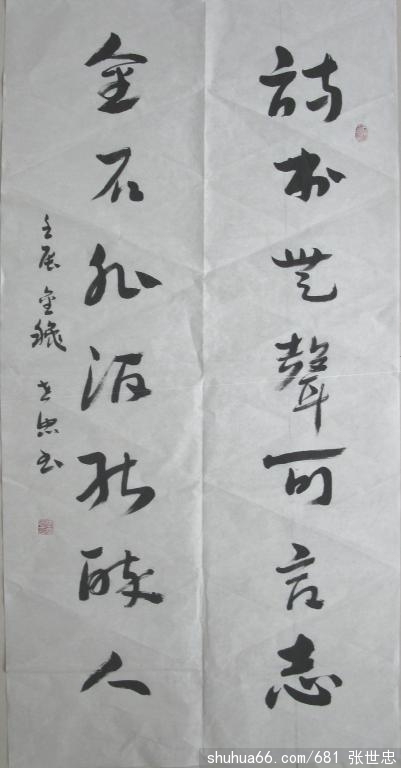 詩書無聲可言志
金石非酒能醉人
壬辰金秋 世忠書
shuhua66.com/681 张世忠